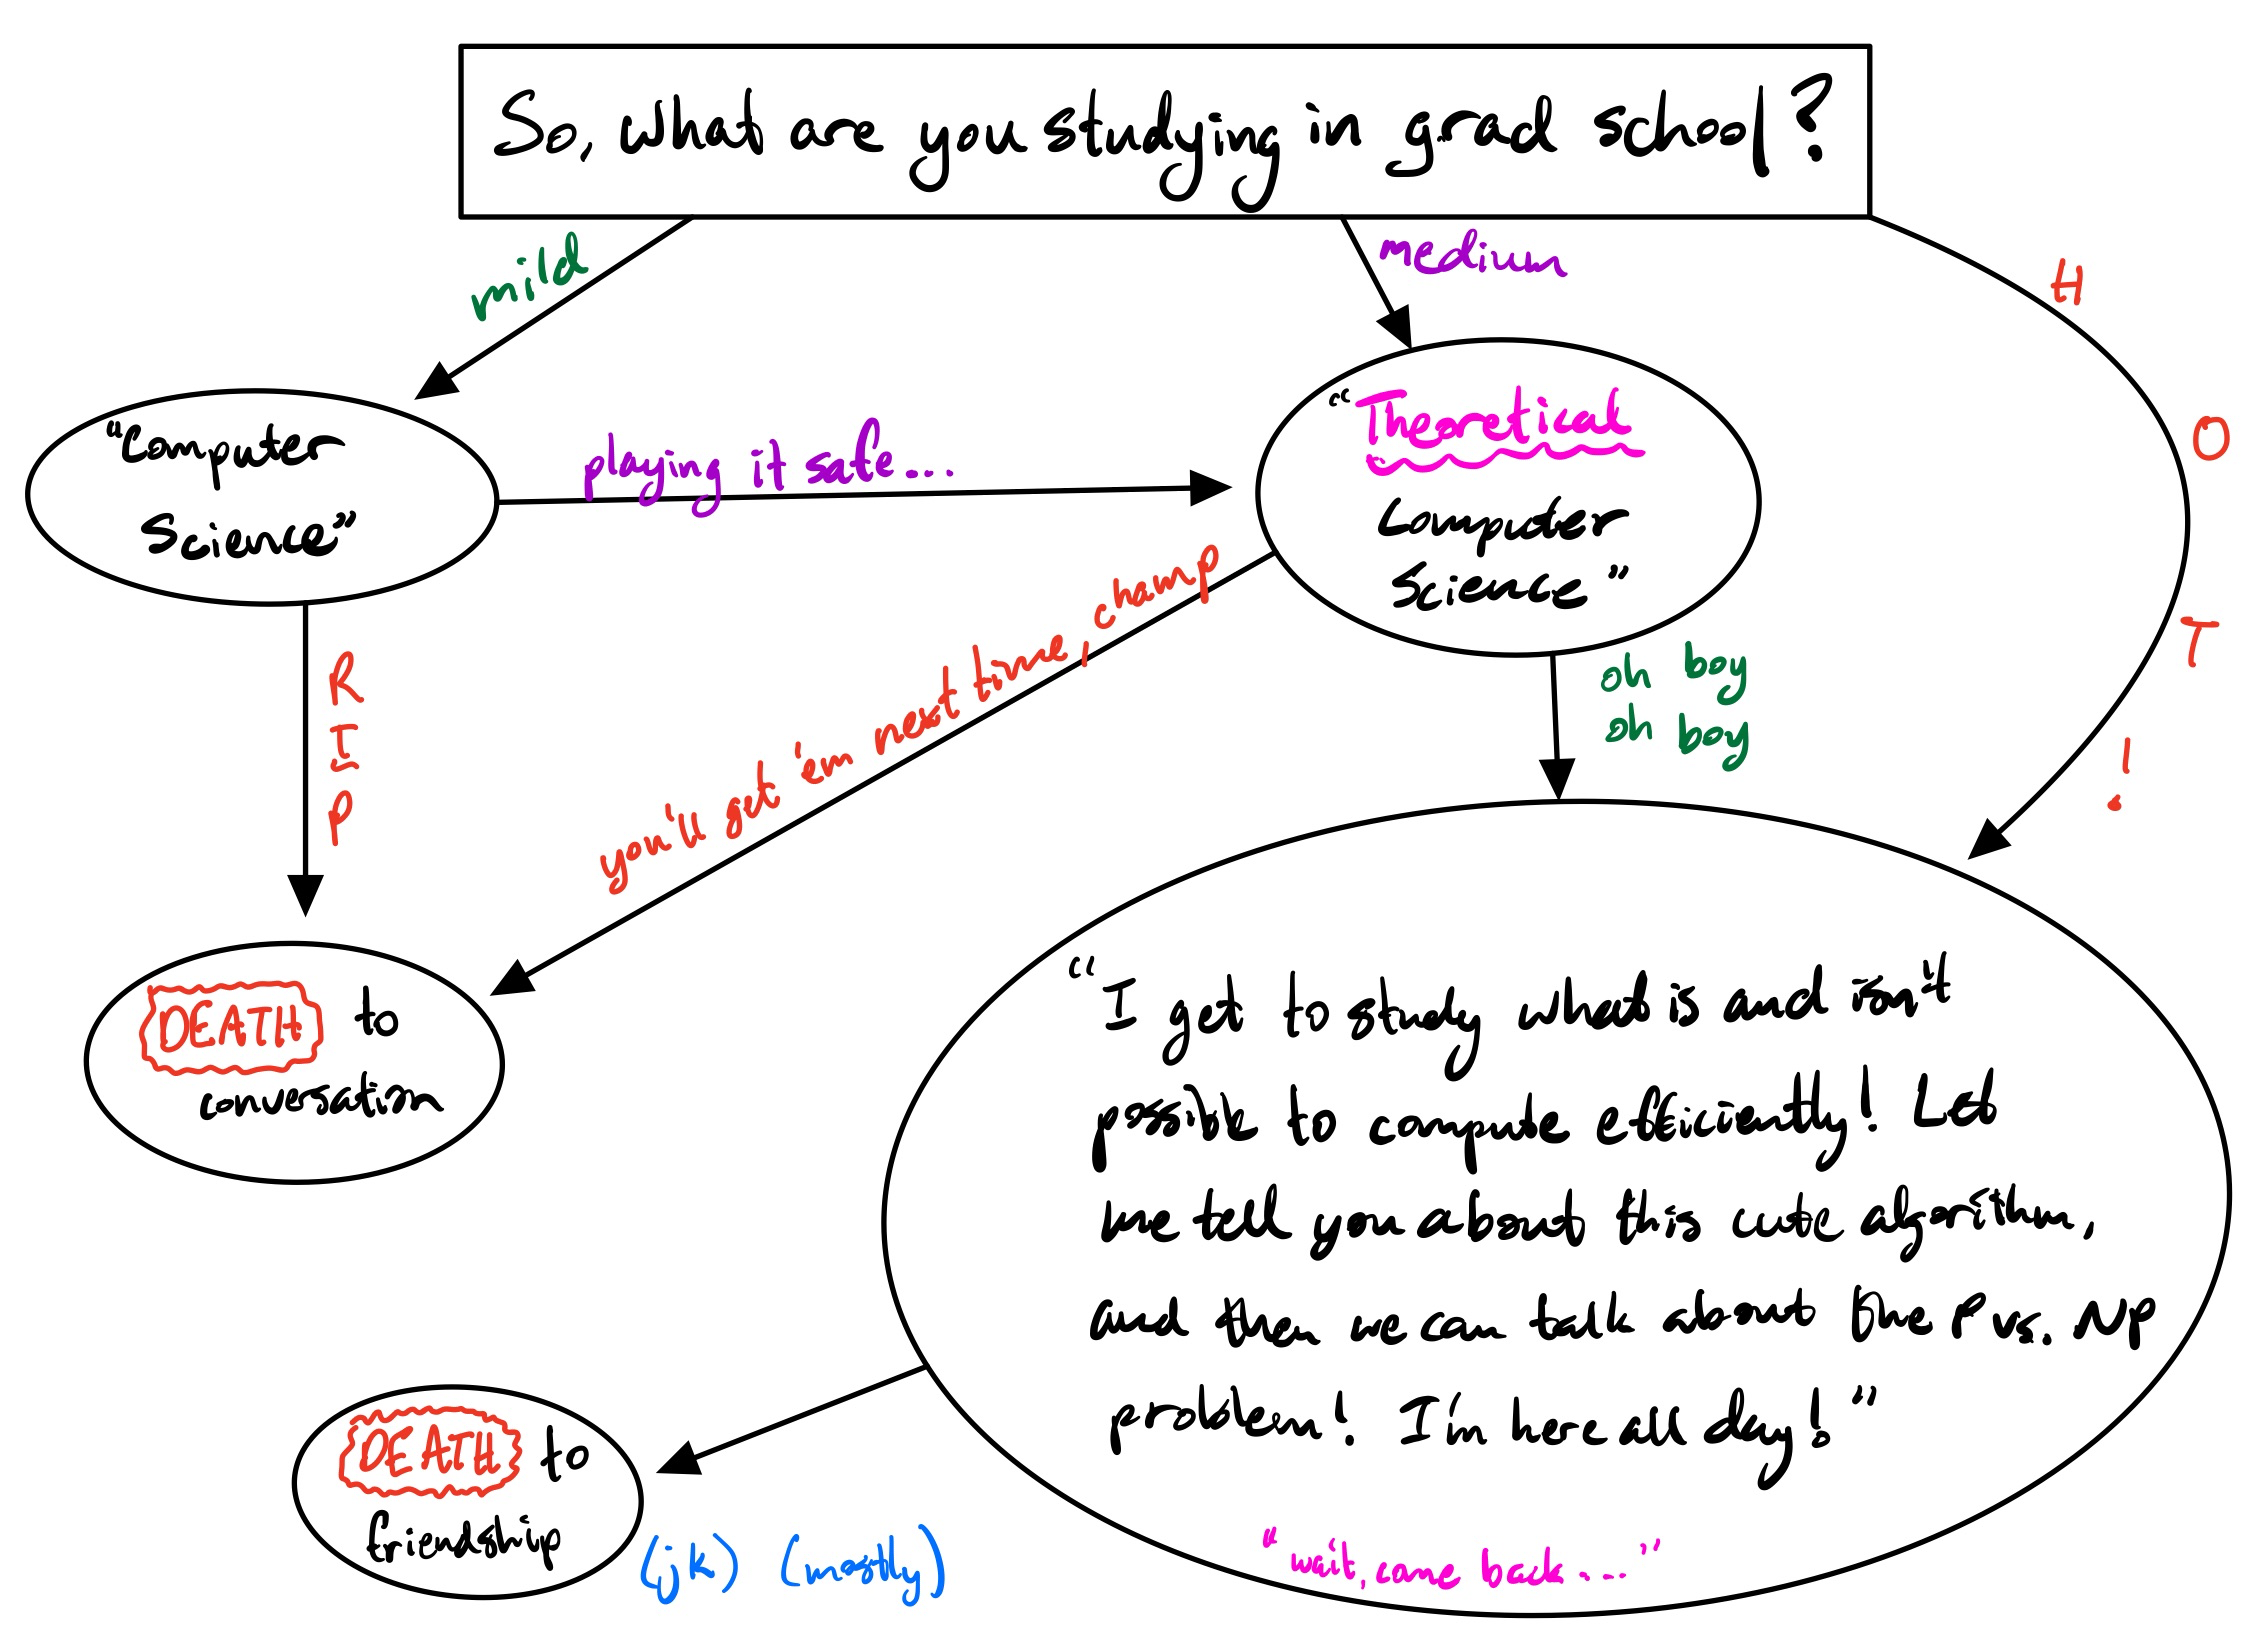 So, what are you studying in grad school?
mild
medium
H
O
T
!
"Computer
Science"
playing it safe...
"Theoretical
Computer
Science"
R
I
P
you'll get 'em next time, champ
oh boy
oh boy
DEATH to
conversation
"I get to study what is and isn't
possible to compute efficiently! Let
me tell you about this cute algorithm,
and then we can talk about the P vs. NP
problem! I'm here all day!"
"wait, come back...."
DEATH to
friendship
(jk) (mostly)